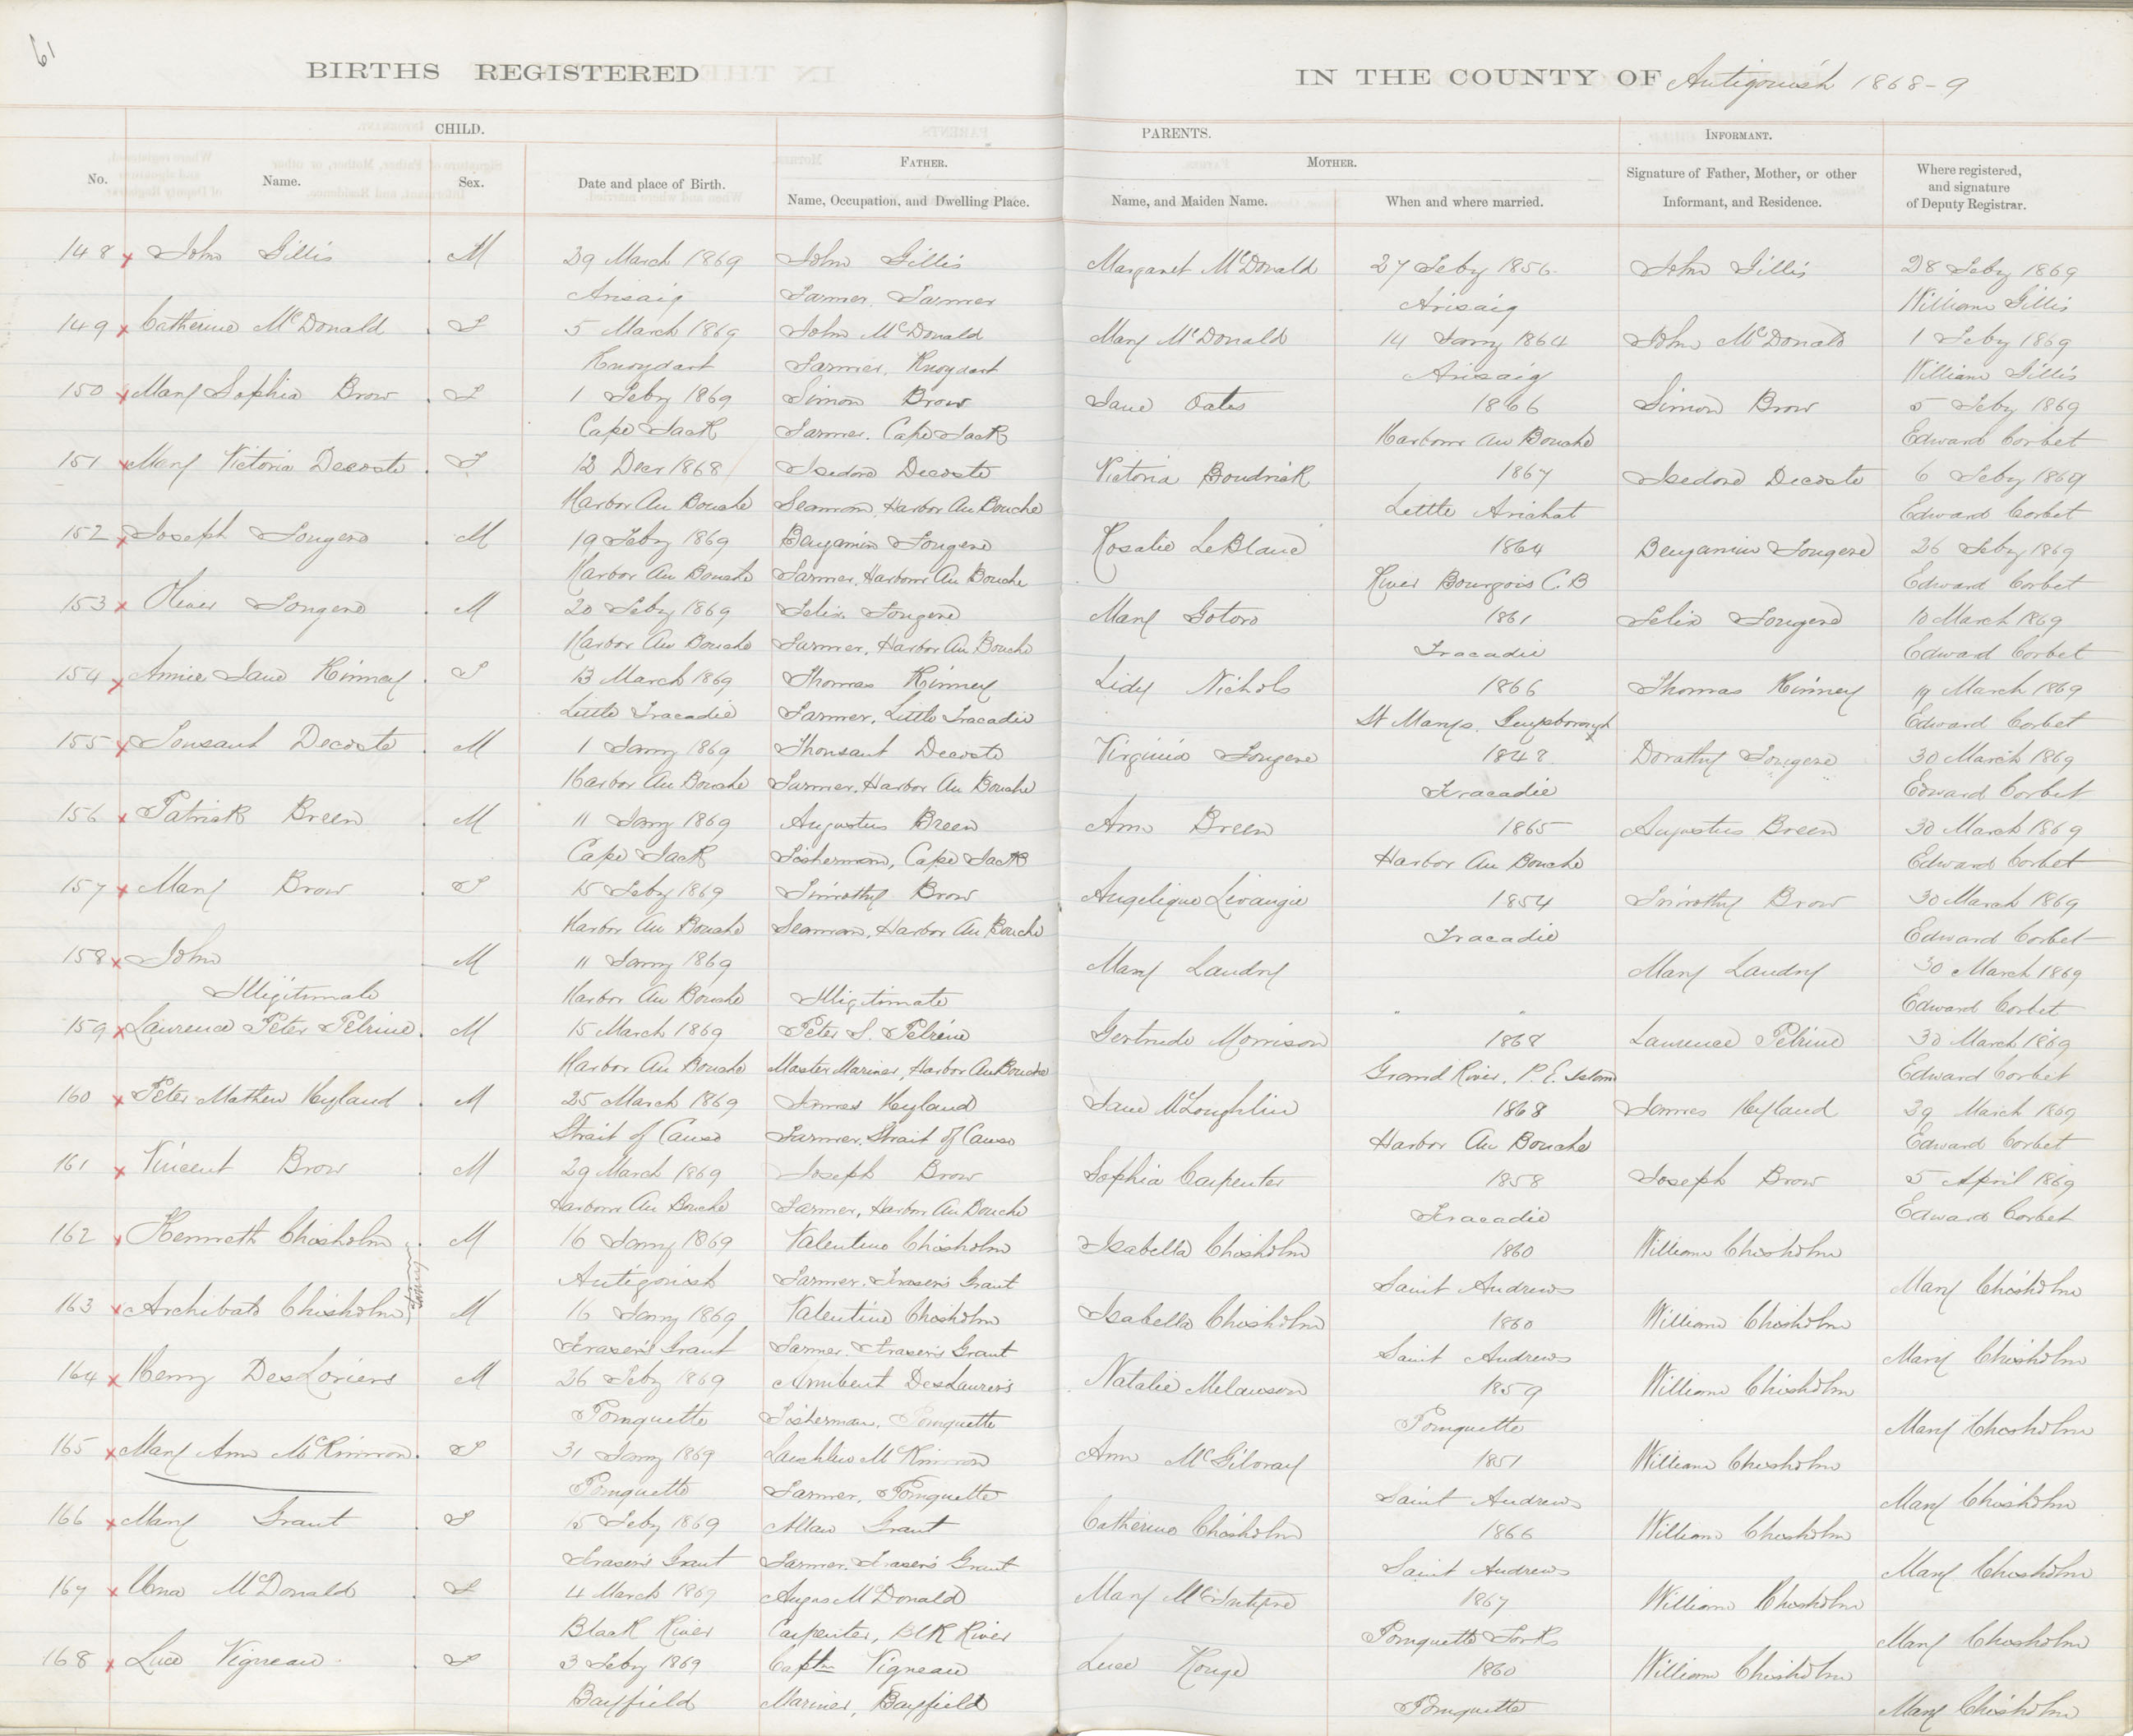 61
BIRTHS REGISTERED IN THE COUNTY OF Antigonish 1868-9
CHILD. PARENTS. INFORMANT.
FATHER. MOTHER.
No. Name. Sex. Date and place of Birth. Name, Occupation, and Dwelling Place. Name, and Maiden Name. When and where married. Signature of Father, Mother, or other Informant, and Residence. Where registered, and signature of Deputy Registrar.
148 x John Gillis M 29 March 1869 John Gillis Margaret McDonald 27 Feby 1856 John Gillis 28 Feby 1869
Arisaig Farmer. Farmer Arisaig William Gillis
149 x Catherine McDonald F 5 March 1869 John McDonald Mary McDonald 14 Jany 1864 John McDonald 1 Feby 1869
Knoydart Farmer, Knoydart Arisaig William Gillis
150 x Mary Sophia Brow F 1 Feby 1869 Simon Brow Jane Oates 1866 Simon Brow 5 Feby 1869
Cape Jack Farmer. Cape Jack Harbour Au Bouche Edward Corbet
151 x Mary Victoria Decoste F 12 Decr 1868 Isedore Decoste Victoria Boudrick 1867 Isedore Decoste 6 Feby 1869
Harbor Au Bouche Seaman, Harbor Au Bouche Little Arichat Edward Corbet
152 x Joseph Fougere M 19 Feby 1869 Benjamin Fougere Rosalie LeBlanc 1864 Benjamin Fougere 26 Feby 1869
Harbor Au Bouche Farmer, Harbour Au Bouche River Bourgois C.B Edward Corbet
153 x Oliver Fougere M 20 Feby 1869 Felix Fougere Mary Gotoro 1861 Felix Fougere 10 March 1869
Harbor Au Bouche Farmer, Harbor Au Bouche Tracadie Edward Corbet
154 x Annie Jane Kinney F 13 March 1869 Thomas Kinney Lidy Nichols 1866 Thomas Kinney 19 March 1869
Little Tracadie Farmer, Little Tracadie St Marys, Guysborough Edward Corbet
155 x Tousant Decoste M 1 Jany 1869 Thousant Decoste Virginia Fougere 1848 Dorathy Fougere 30 March 1869
Harbor Au Bouche Farmer, Harbor Au Bouche Tracadie Edward Corbet
156 x Patrick Breen M 11 Jany 1869 Augustus Breen Ann Breen 1865 Augustus Breen 30 March 1869
Cape Jack Fisherman, Cape Jack Harbor Au Bouche Edward Corbet
157 x Mary Brow F 15 Feby 1869 Timothy Brow Angelique Livangie 1854 Timothy Brow 30 March 1869
Harbor Au Bouche Seaman, Harbor Au Bouche Tracadie Edward Corbet
158 x John M 11 Jany 1869 Mary Landry Mary Landry 30 March 1869
Illigitimate Harbor Au Bouche Illigitimate " " Edward Corbet
159 x Laurence Peter Pelrine M 15 March 1869 Peter S. Pelrine Gertrude Morrison 1868 Laurence Pelrine 30 March 1869
Harbor Au Bouche Master Mariner, Harbor Au Bouche Grand River, P.E. Island Edward Corbet
160 x Peter Mathew Hyland M 25 March 1869 James Hyland Jane McLoughlin 1868 James Hyland 29 March 1869
Strait of Canso Farmer, Strait of Canso Harbor Au Bouche Edward Corbet
161 x Vincent Brow M 29 March 1869 Joseph Brow Sophia Carpenter 1858 Joseph Brow 5 April 1869
Harbour Au Bouche Farmer, Harbor Au Bouche Tracadie Edward Corbet
162 x Kenneth Chisholm M 16 Jany 1869 Valentine Chisholm Isabella Chisholm 1860 William Chisholm
Antigonish Farmer. Fraser's Grant Saint Andrews Mary Chisholm
163 x Archibald Chisholm M 16 Jany 1869 Valentine Chisholm Isabella Chisholm 1860 William Chisholm
Fraser's Grant Farmer. Fraser's Grant Saint Andrews Mary Chisholm
164 x Henry DesLoriers M 26 Feby 1869 DesLaurers Natalie Melawson 1859 William Chisholm
Pomquette Fisherman, Pomquette Pomquette Mary Chisholm
165 x Mary Ann McKinnon F 31 Jany 1869 Lauchlin McKinnon Ann McGilvray 1851 William Chisholm
Pomquette Farmer, Pomquette Saint Andrews Mary Chisholm
166 x Mary Grant F 15 Feby 1869 Allan Grant Catherine Chisholm 1866 William Chisholm
Fraser's Grant Farmer. Fraser's Grant Saint Andrews Mary Chisholm
167 x Una McDonald F 4 March 1869 Angus McDonald Mary McIntyre 1867 William Chisholm
Black River Carpenter, Blk River Pomquette Forks Mary Chisholm
168 x Luce Vigneau F 3 Feby 1869 Captn Vigneau Luce Rouge 1860 William Chisholm
Bayfield Mariner, Bayfield Pomquette Mary Chisholm